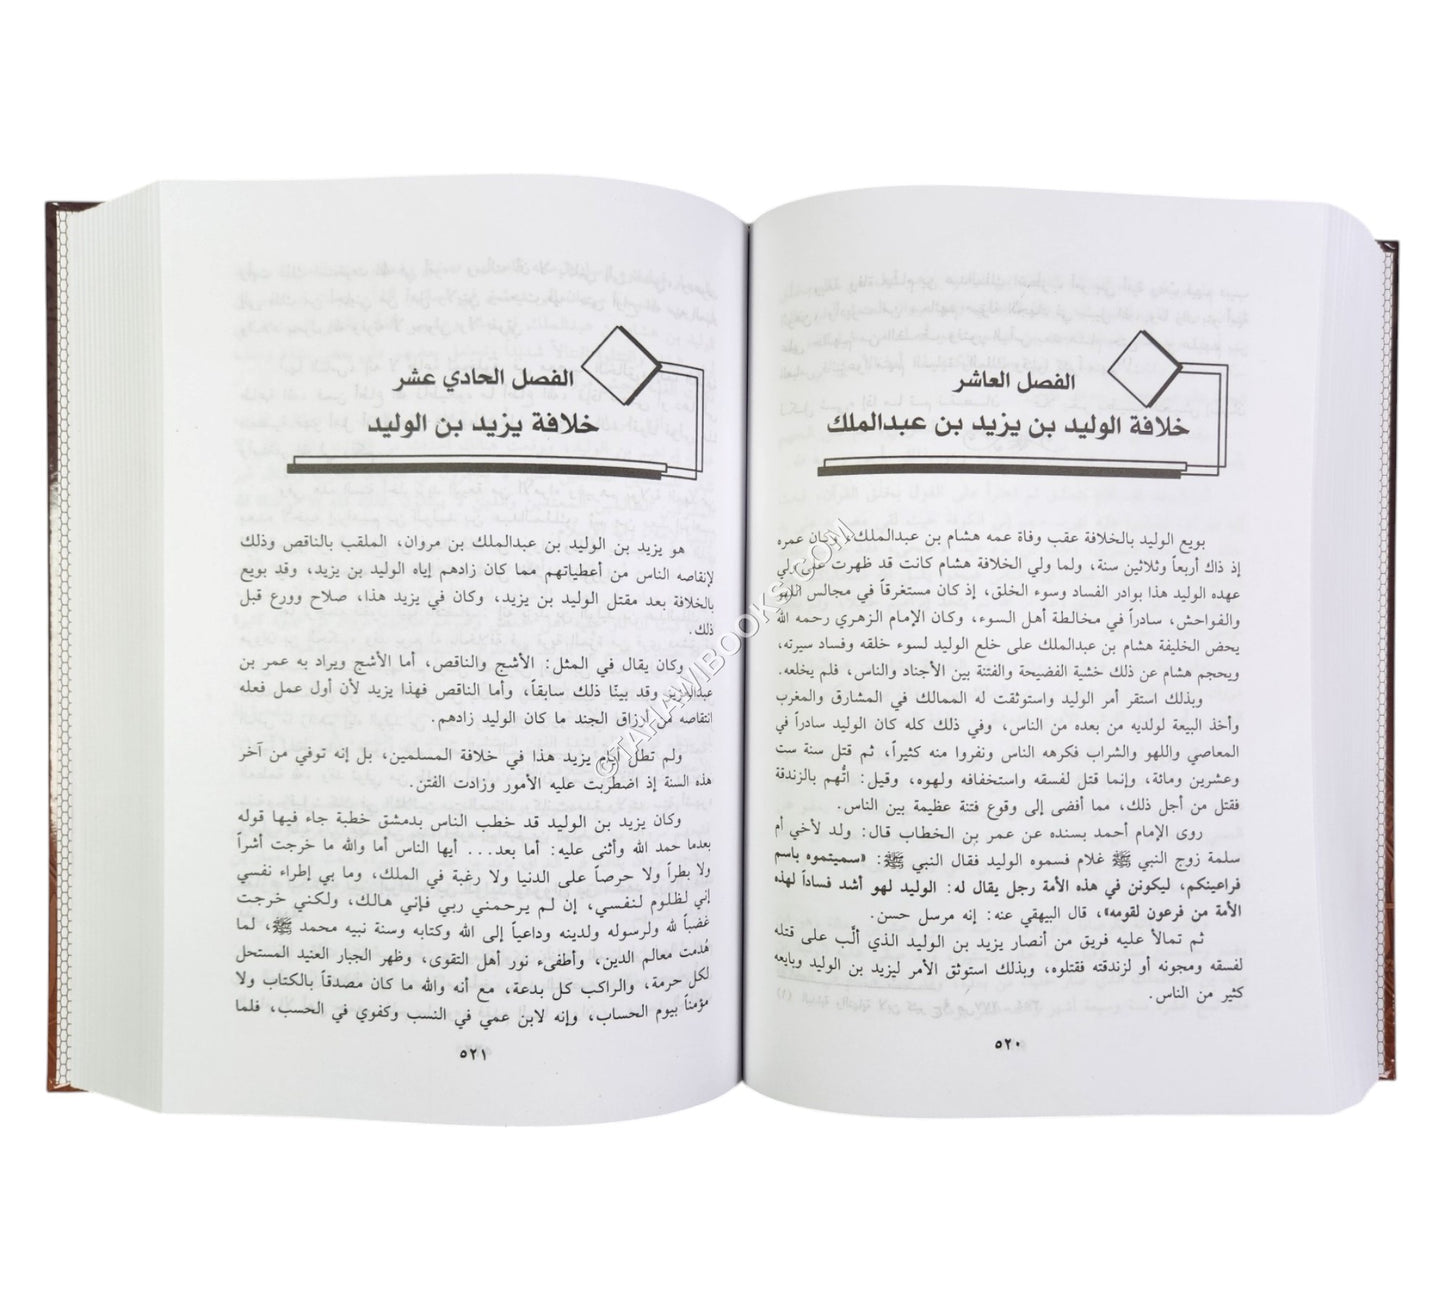 الفصل العاشر
خلافة الوليد بن يزيد بن عبدالملك
بويع الوليد بالخلافة عقب وفاة عمه هشام بن عبدالملك، وكان عمره
إذ ذاك أربعاً وثلاثين سنة، ولما ولي الخلافة هشام كانت قد ظهرت على ولي
عهده الوليد هذا بوادر الفساد وسوء الخلق، إذ كان مستغرقاً في مجالس اللهو
والفواحش، سادراً في مخالطة أهل السوء، وكان الإمام الزهري رحمه الله
يحض الخليفة هشام بن عبدالملك على خلع الوليد لسوء خلقه وفساد سيرته،
ويحجم هشام عن ذلك خشية الفضيحة والفتنة بين الأجناد والناس، فلم يخلعه.
وبذلك استقر أمر الوليد واستوثقت له الممالك في المشارق والمغرب
وأخذ البيعة لولديه من بعده من الناس، وفي ذلك كله كان الوليد سادراً في
المعاصي واللهو والشراب فكرهه الناس ونفروا منه كثيراً، ثم قتل سنة ست
وعشرين ومائة، وإنما قتل لفسقه واستخفافه ولهوه، وقيل: اتُّهم بالزندقة
فقتل من أجل ذلك، مما أفضى إلى وقوع فتنة عظيمة بين الناس.
روى الإمام أحمد بسنده عن عمر بن الخطاب قال: ولد لأخي أم
سلمة زوج النبي ﷺ غلام فسموه الوليد فقال النبي ﷺ: «سميتموه باسم
فراعينكم، ليكونن في هذه الأمة رجل يقال له: الوليد لهو أشد فساداً لهذه
الأمة من فرعون لقومه»، قال البيهقي عنه: إنه مرسل حسن.
ثم تمالأ عليه فريق من أنصار يزيد بن الوليد الذي ألّب على قتله
لفسقه ومجونه أو لزندقته فقتلوه، وبذلك استوثق الأمر ليزيد بن الوليد وبايعه
كثير من الناس.
٥٢٠
الفصل الحادي عشر
خلافة يزيد بن الوليد
هو يزيد بن الوليد بن عبدالملك بن مروان، الملقب بالناقص وذلك
لإنقاصه الناس من أعطياتهم مما كان زادهم إياه الوليد بن يزيد، وقد بويع
بالخلافة بعد مقتل الوليد بن يزيد، وكان في يزيد هذا، صلاح وورع قبل
ذلك.
وكان يقال في المثل: الأشج والناقص، أما الأشج ويراد به عمر بن
عبدالعزيز وقد بينّا ذلك سابقاً، وأما الناقص فهذا يزيد لأن أول عمل فعله
انتقاصه من أرزاق الجند ما كان الوليد زادهم.
ولم تطل أيام يزيد هذا في خلافة المسلمين، بل إنه توفي من آخر
هذه السنة إذ اضطربت عليه الأمور وزادت الفتن.
وكان يزيد بن الوليد قد خطب الناس بدمشق خطبة جاء فيها قوله
بعدما حمد الله وأثنى عليه: أما بعد... أيها الناس أما والله ما خرجت أشراً
ولا بطراً ولا حرصاً على الدنيا ولا رغبة في الملك، وما بي إطراء نفسي
إني لظلوم لنفسي، إن لم يرحمني ربي فإني هالك، ولكني خرجت
غضباً لله ولرسوله ولدينه وداعياً إلى الله وكتابه وسنة نبيه محمد ﷺ، لما
هُدمت معالم الدين، وأطفىء نور أهل التقوى، وظهر الجبار العنيد المستحل
لكل حرمة، والراكب كل بدعة، مع أنه والله ما كان مصدقاً بالكتاب ولا
مؤمناً بيوم الحساب، وإنه لابن عمي في النسب وكفوي في الحسب، فلما
٥٢١
©TAHAMIBOOKS.COM